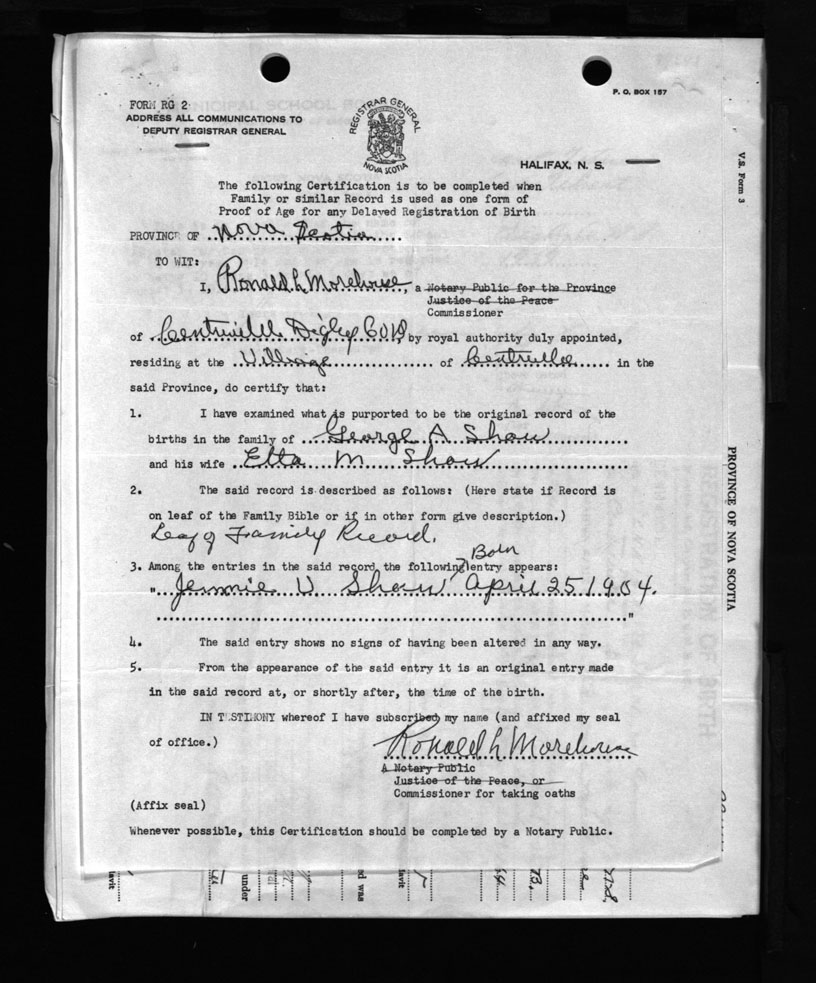 P. O. BOX 157
FORM RG 2
ADDRESS ALL COMMUNICATIONS TO
DEPUTY REGISTRAR GENERAL
REGISTRAR GENERAL
NOVA SCOTIA
HALIFAX, N. S.
The following Certification is to be completed when
Family or similar Record is used as one form of
Proof of Age for any Delayed Registration of Birth
PROVINCE OF Nova Scotia
TO WIT:
I, Ronald L Morehouse, a Notary Public for the Province
Justice of the Peace
Commissioner
of Centreville Digby Co by royal authority duly appointed,
residing at the Village of Centreville in the
said Province, do certify that:
1. I have examined what is purported to be the original record of the
births in the family of George A Shaw
and his wife Etta M Shaw
2. The said record is described as follows: (Here state if Record is
on leaf of the Family Bible or if in other form give description.)
Leaf of Family Record.
Born
3. Among the entries in the said record the following entry appears:
" Jennie V Shaw April 25 1904.
"
4. The said entry shows no signs of having been altered in any way.
5. From the appearance of the said entry it is an original entry made
in the said record at, or shortly after, the time of the birth.
IN TESTIMONY whereof I have subscribed my name (and affixed my seal
of office.)
Ronald L Morehouse
A Notary Public
Justice of the Peace, or
Commissioner for taking oaths
(Affix seal)
Whenever possible, this Certification should be completed by a Notary Public.
V.S. Form 3
PROVINCE OF NOVA SCOTIA
under
d was
N.S.